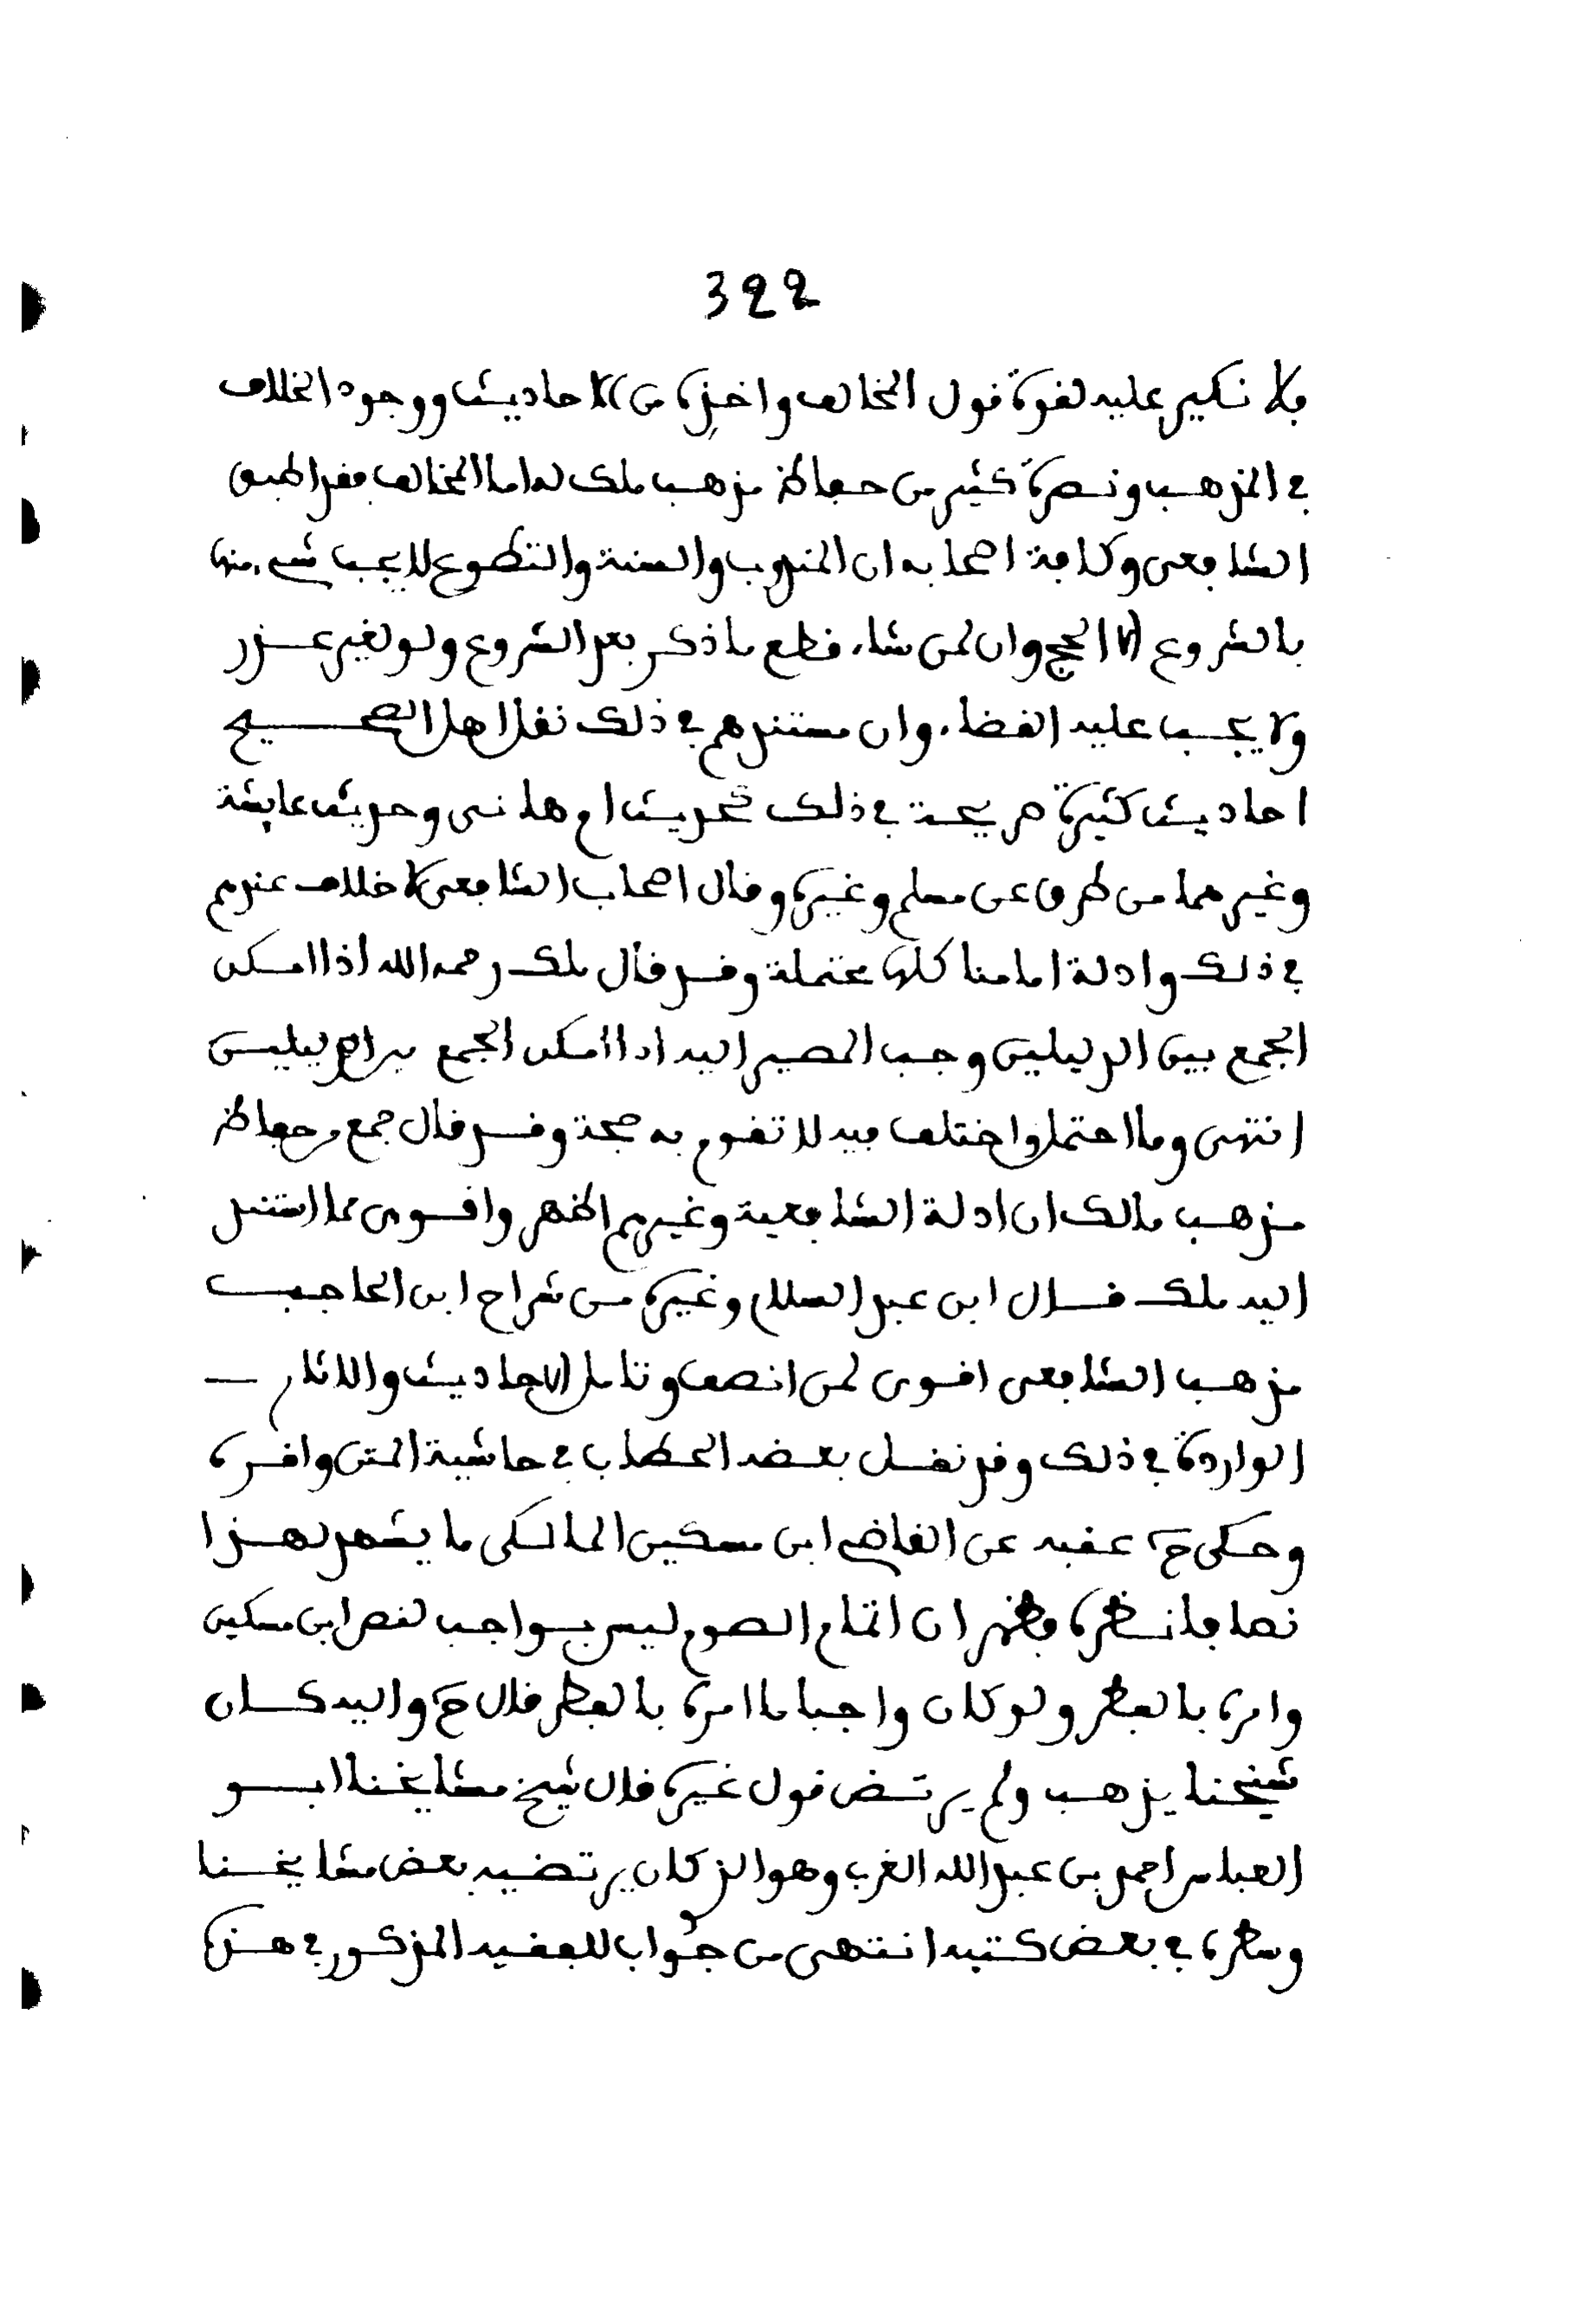 322
فلا نكير عليه لقوة قول المخالف واخذه من الاحاديث ووجود الخلاف
في المذهب ونصرة كثير من حفاظ مذهب ملك له اما المخالف فقد اطبق
الشافعي وكافة اصحابه ان المندوب والسنة والتطوع لا يجب شيء منها
بالشروع الا الحج وان لمن شاء قطع ما ذكر بعد الشروع ولو لغير عذر
ولا يجب عليه القضاء وان مستندهم في ذلك نقل اهل الصحيح
احاديث كثيرة صريحة في ذلك كحديث ام هانئ وحديث عايشة
وغيرهما من طرق عن مسلم وغيره وقال اصحاب الشافعي لا خلاف عندهم
في ذلك وادلة امامنا كلها محتملة وقد قال ملك رحمه الله اذا امكن
الجمع بين الدليلين وجب المصير اليه اذا امكن الجمع بين الدليلين
انتهى وما احتمل واختلف فيه لا تقوم به حجة وقد قال جمع من حفاظ
مذهب مالك ان ادلة الشافعية وغيرهم اظهر واقوى مما استند
اليه ملك قال ابن عبد السلام وغيره من شراح ابن الحاجب
مذهب الشافعي اقوى لمن انصف وتامل الاحاديث والاثار
الواردة في ذلك وقد نقل بعضه الحطاب في حاشية المتن واقره
وحكى ح عقبه عن القاضي ابن مسكين المالكي ما يشهد لهذا
نصا فانظره فظهر ان اتمام الصوم ليس بواجب لنص ابن مسكين
وامره بالفطر ولو كان واجبا ما امره بالفطر قال ح واليه كان
شيخنا يذهب ولم يرتض قول غيره قال شيخ مشايخنا ابو
العباس احمد بن عبد الله الغرب وهو الذ كان يرتضيه بعض مشايخنا
وسطره في بعض كتبه انتهى من جواب للفقيه المذكور في هذه